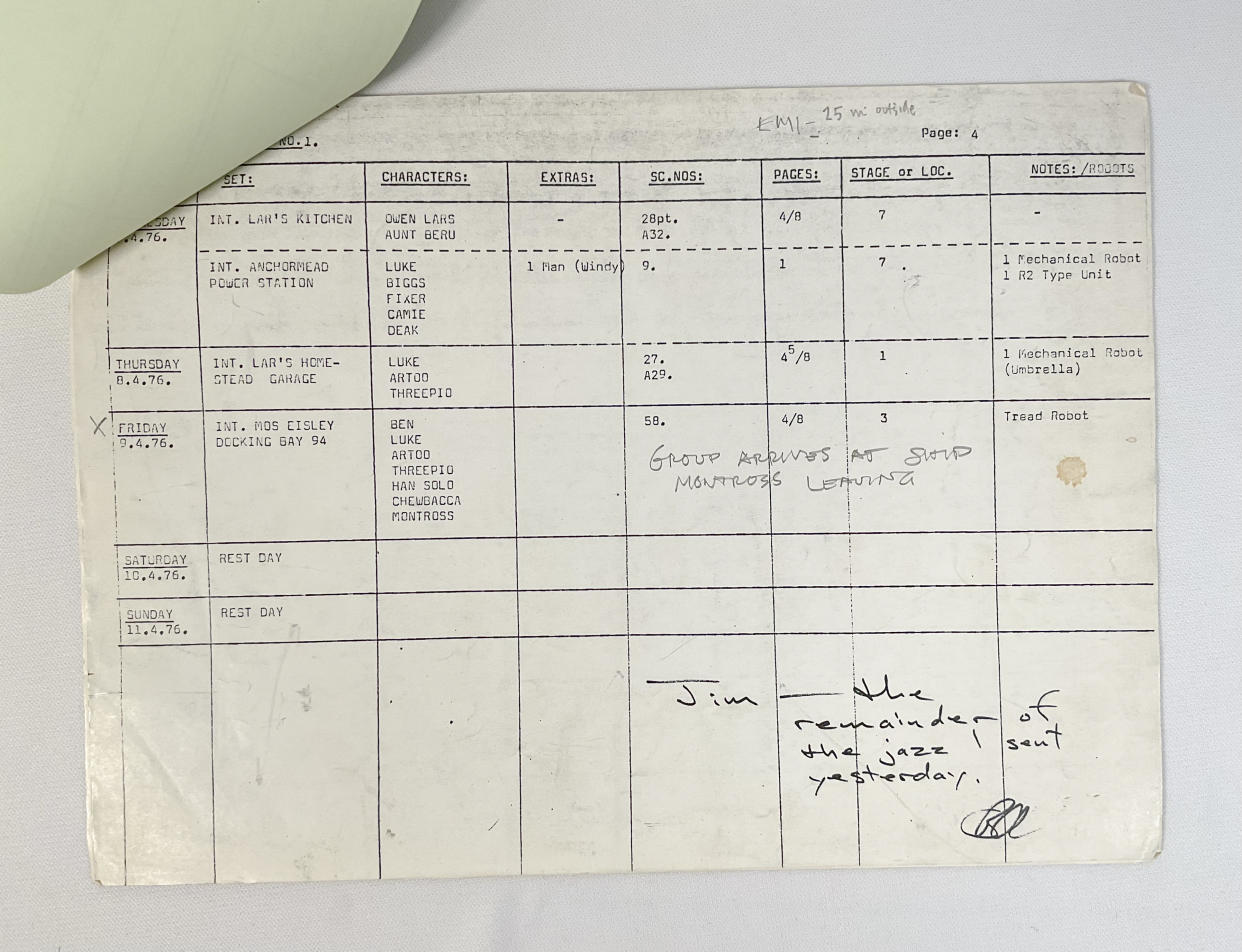 EMI - 25 mi outside
NO.1. Page: 4
SET: CHARACTERS: EXTRAS: SC.NOS: PAGES: STAGE or LOC. NOTES:/ROBOTS
INT. LAR'S KITCHEN OWEN LARS - 28pt. 4/8 7 -
.4.76. AUNT BERU A32.
INT. ANCHORMEAD LUKE 1 Man (Windy) 9. 1 7 . 1 Mechanical Robot
POWER STATION BIGGS 1 R2 Type Unit
FIXER
CAMIE
DEAK
THURSDAY INT. LAR'S HOME- LUKE 27. 4 5/8 1 1 Mechanical Robot
8.4.76. STEAD GARAGE ARTOO A29. (Umbrella)
THREEPIO
X FRIDAY INT. MOS EISLEY BEN 58. 4/8 3 Tread Robot
9.4.76. DOCKING BAY 94 LUKE
ARTOO GROUP ARRIVES AT SHIP
THREEPIO MONTROSS LEAVING
HAN SOLO
CHEWBACCA
MONTROSS
SATURDAY REST DAY
10.4.76.
SUNDAY REST DAY
11.4.76.
Jim — the
remainder of
the jazz I sent
yesterday.